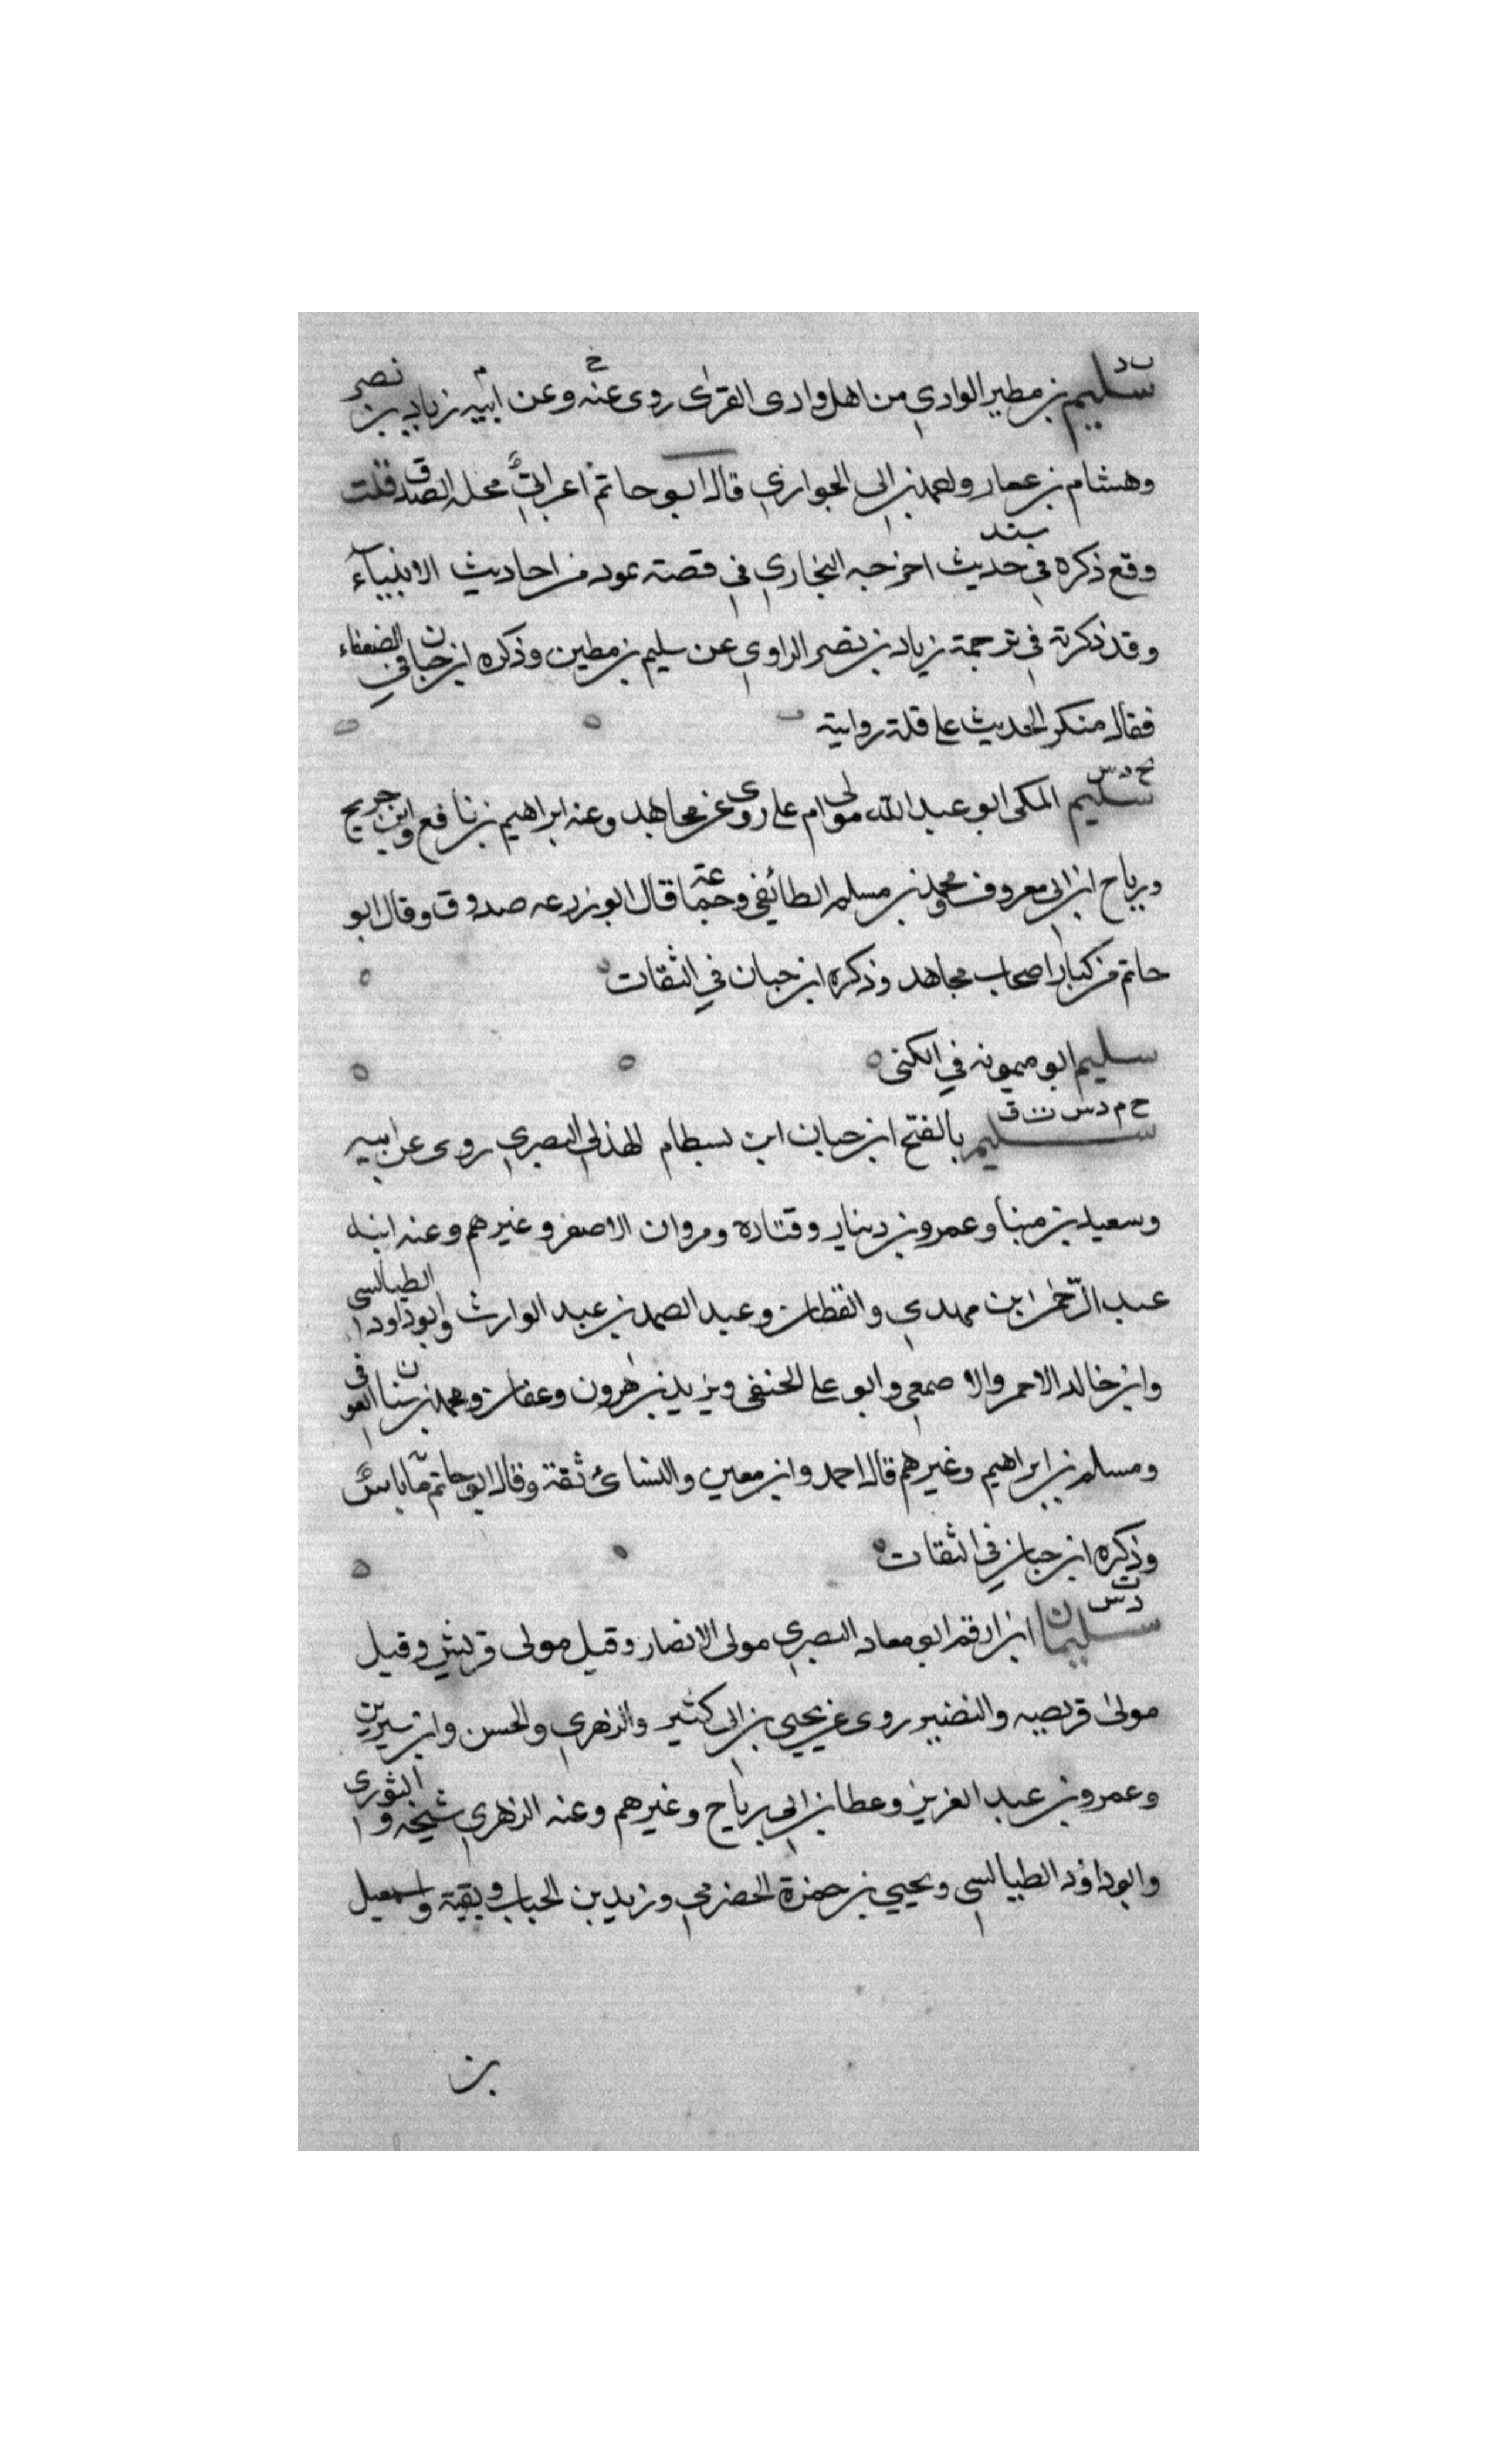 ب د
سليم بن مطير الوادي من اهل وادى القرى روى عنه وعن ابيه زياد بن نصر
وهشام بن عمار واحمد بن ابى الحوارى قال ابو حاتم اعرابي محله الصدق قلت
وقع ذكره في حديث اخرجه البخاري في قصة ثمود من احاديث الانبياء
وقد ذكرته في ترجمة زياد بن نصر الراوي عن سليم بن مطين وذكره ابن حبان في الضعفاء
فقال منكر الحديث على قلة روايته
خ د س
سليم المكى ابو عبد الله مولى ام على روى عن مجاهد وعنه ابراهيم بن نافع وابن جريج
ورباح ابن ابى معروف ومحمد بن مسلم الطائفي وجماعة قال ابو زرعه صدوق وقال ابو
حاتم من كبار اصحاب مجاهد وذكره ابن حبان في الثقات
سليم ابو ميمونه في الكنى
خ م د س ت ق
سليم بالفتح ابن حيان ابن بسطام الهذلي البصري روى عن ابيه
وسعيد بن مينا وعمرو بن دينار وقتاده ومروان الاصفر وغيرهم وعنه ابنه
عبد الرحمن ابن مهدي والقطان وعبد الصمد بن عبد الوارث وابو داود الطيالسى
وابن خالد الاحمر والاصمعي وابو على الحنفى ويزيد بن هرون وعفان ومحمد بن سنان العوقى
ومسلم بن ابراهيم وغيرهم قال احمد وابن معين والنسائ ثقة وقال ابو حاتم ما به باس
وذكره ابن حبان في الثقات
د ت س
سليمان ابن ارقم ابو معاد البصري مولى الانصار وقيل مولى قريش وقيل
مولى قريضه والنضير روى عن يحيى بن ابى كثير والزهري والحسن وابن سيرين
وعمرو بن عبد العزيز وعطا بن ابي رباح وغيرهم وعنه الزهري شيخه والثورى
وابو داود الطيالسى ويحيى بن حمزة الحضرمي وزيد بن الحباب وبقية واسمعيل
بن